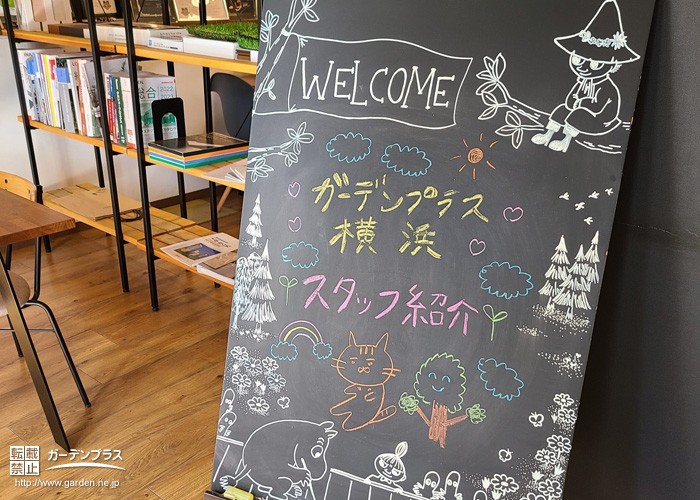 WELCOME
ガーデンプラス
横浜
スタッフ紹介
転載
禁止
ガーデンプラス
http://www.garden.ne.jp